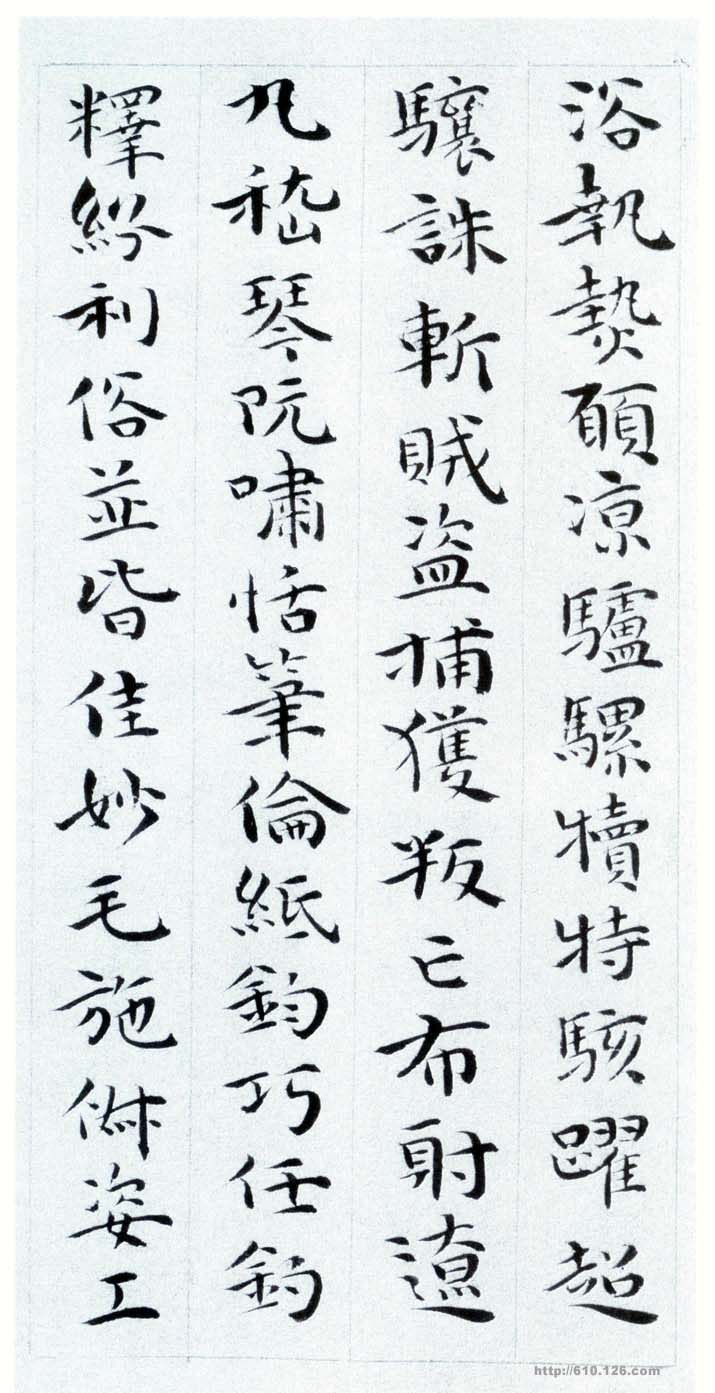 浴執熱願涼驢騾犢特駭躍超
驤誅斬賊盜捕獲叛亡布射遼
丸嵇琴阮嘯恬筆倫紙鈞巧任釣
釋紛利俗並皆佳妙毛施淑姿工
http://610.126.com